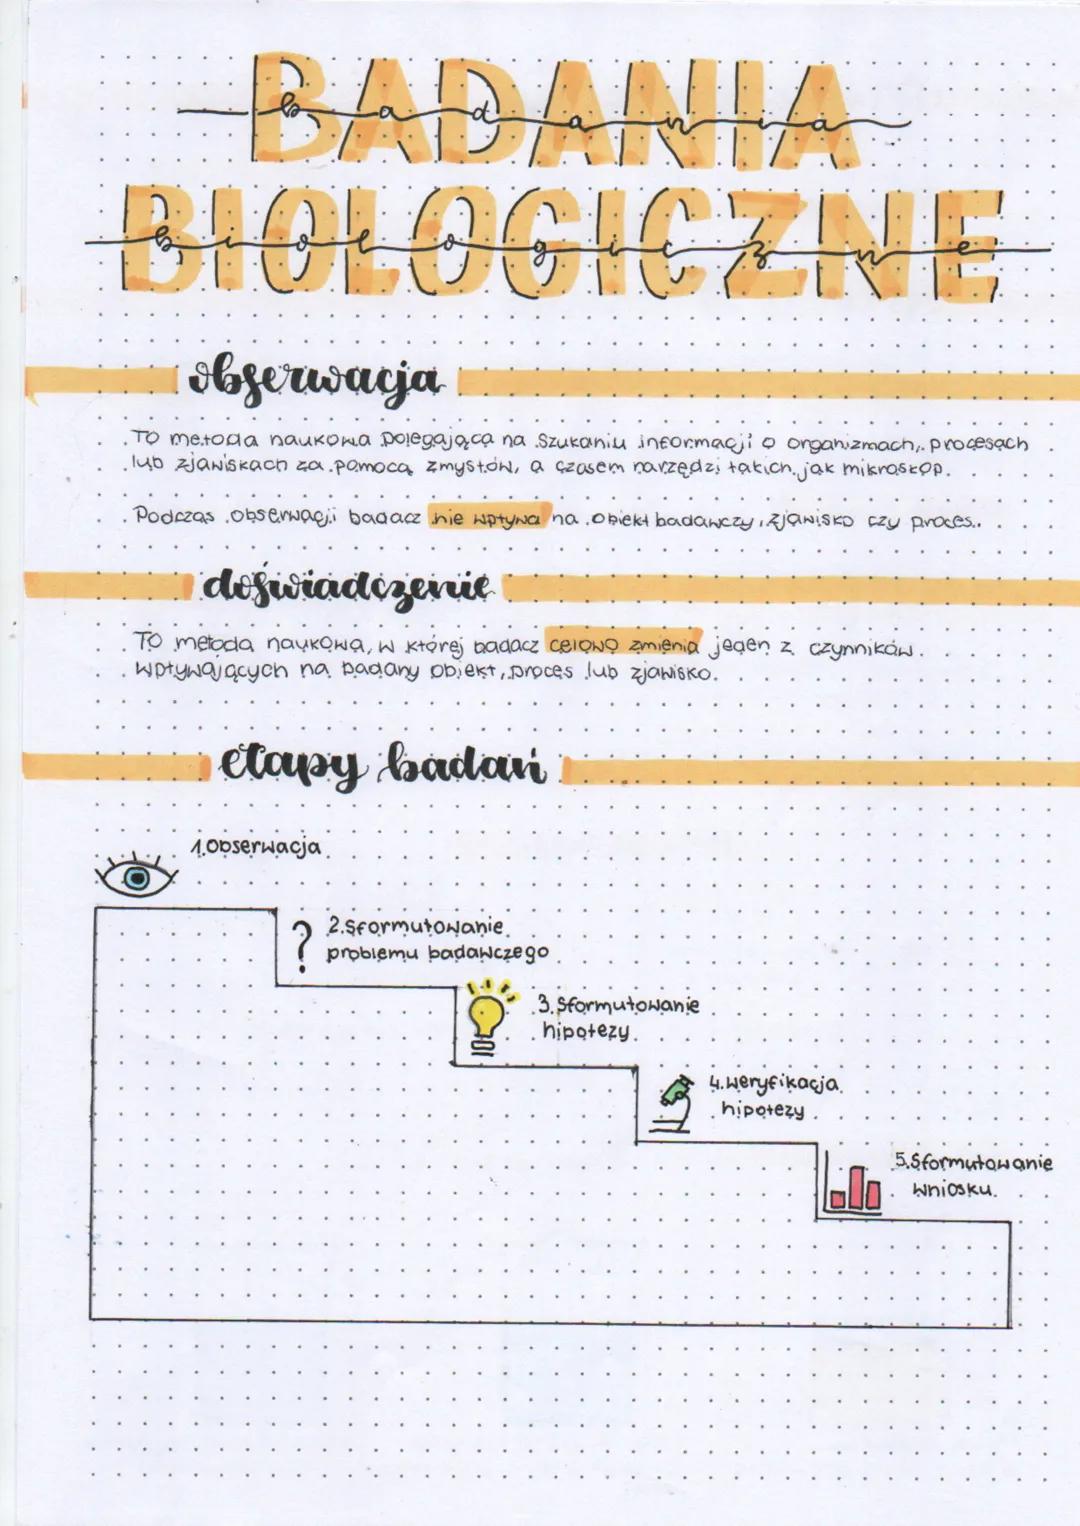 BADANIA
badania
BIOLOGICZNE
biologiczne
obserwacja
To metoda naukowa polegająca na szukaniu informacji o organizmach, procesach
lub zjawiskach za pomocą zmysłów, a czasem narzędzi takich jak mikroskop.
Podczas obserwacji badacz nie wpływa na obiekt badawczy, zjawisko czy proces.
doświadczenie
To metoda naukowa, w której badacz celowo zmienia jeden z czynników
wpływających na badany obiekt, proces lub zjawisko.
etapy badań
1.Obserwacja
2.Sformułowanie
problemu badawczego
3.Sformułowanie
hipotezy
4.Weryfikacja
hipotezy
5.Sformułowanie
wniosku.
?